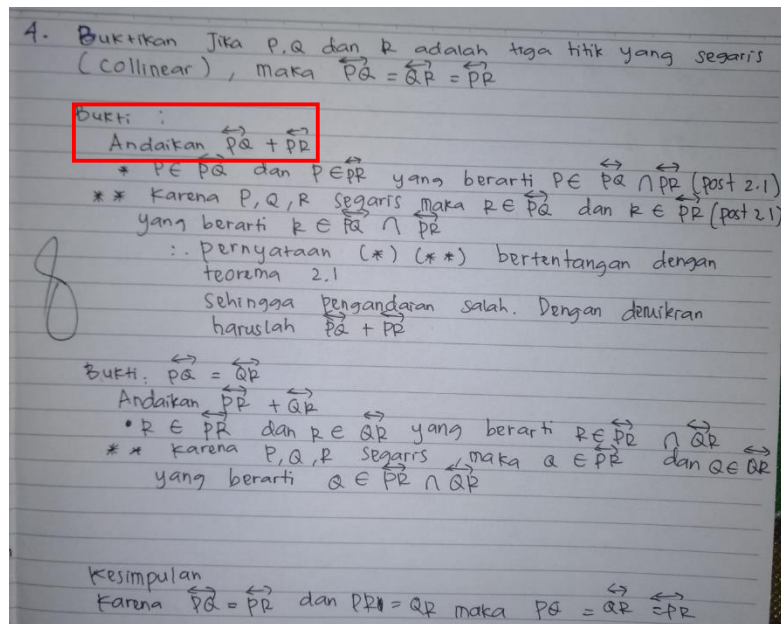 4. Buktikan Jika P,Q dan R adalah tiga titik yang segaris
(collinear), maka \overleftrightarrow{PQ} = \overleftrightarrow{QR} = \overleftrightarrow{PR}
Bukti :
Andaikan \overleftrightarrow{PQ} + \overleftrightarrow{PR}
* P ∈ \overleftrightarrow{PQ} dan P ∈ \overleftrightarrow{PR} yang berarti P ∈ \overleftrightarrow{PQ} ∩ \overleftrightarrow{PR} (post 2.1)
** Karena P, Q, R segaris maka R ∈ \overleftrightarrow{PQ} dan R ∈ \overleftrightarrow{PR} (post 2.1)
yang berarti R ∈ \overleftrightarrow{PQ} ∩ \overleftrightarrow{PR}
∴ pernyataan (*) (**) bertentangan dengan
teorema 2.1
sehingga pengandaian salah. Dengan demikian
haruslah \overleftrightarrow{PQ} + \overleftrightarrow{PR}
8
Bukti: \overleftrightarrow{PQ} = \overleftrightarrow{QR}
Andaikan \overleftrightarrow{PR} + \overleftrightarrow{QR}
• R ∈ \overleftrightarrow{PR} dan R ∈ \overleftrightarrow{QR} yang berarti R ∈ \overleftrightarrow{PR} ∩ \overleftrightarrow{QR}
** Karena P,Q,R segaris, maka Q ∈ \overleftrightarrow{PR} dan Q ∈ \overleftrightarrow{QR}
yang berarti Q ∈ \overleftrightarrow{PR} ∩ \overleftrightarrow{QR}
Kesimpulan
Karena \overleftrightarrow{PQ} = \overleftrightarrow{PR} dan PR = QR maka PQ = \overleftrightarrow{QR} = \overleftrightarrow{PR}